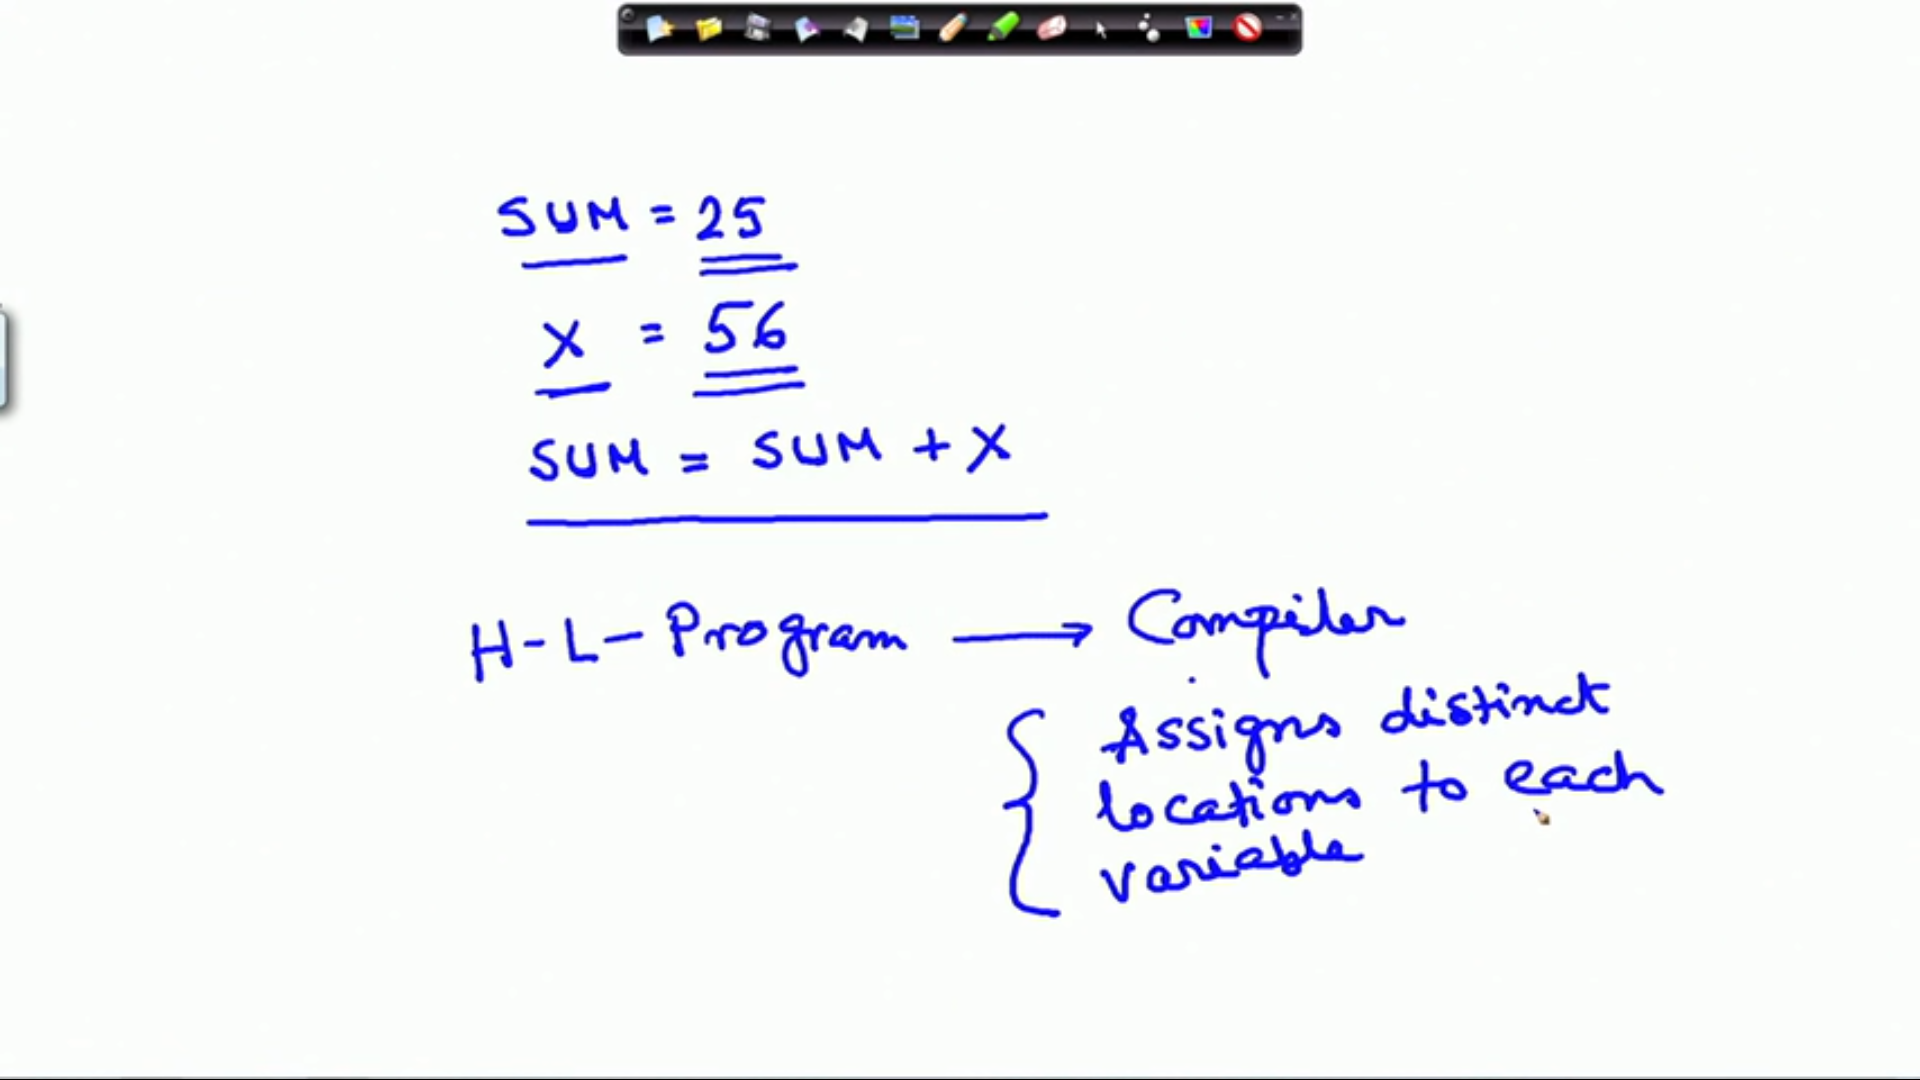 SUM = 25
X = 56
SUM = SUM + X
H-L- Program → Compiler
Assigns distinct
locations to each
variable